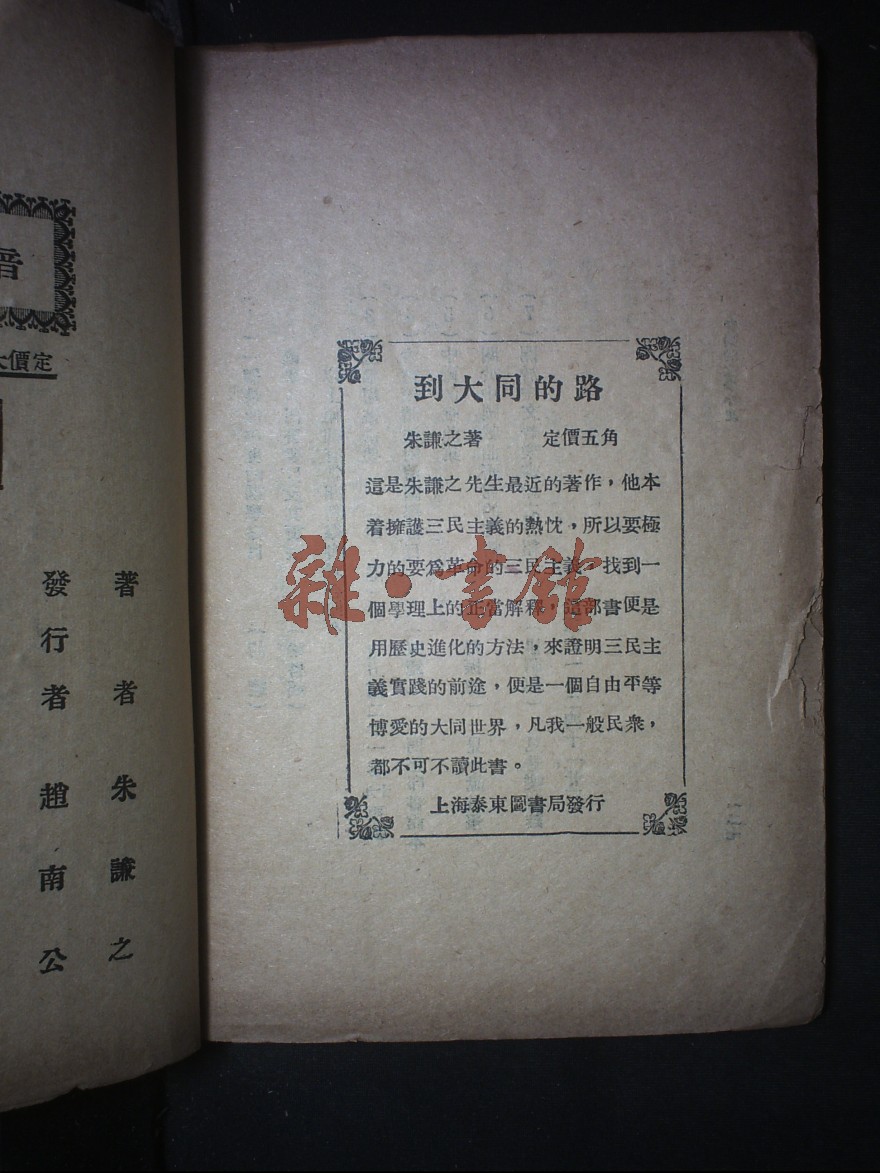 到大同的路
朱謙之著　定價五角
這是朱謙之先生最近的著作，他本
着擁護三民主義的熱忱，所以要極
力的要爲革命的三民主義，找到一
個學理上的正當解釋，這部書便是
用歷史進化的方法，來證明三民主
義實踐的前途，便是一個自由平等
博愛的大同世界，凡我一般民衆，
都不可不讀此書。
上海泰東圖書局發行
雜·書館
定價大
著者　朱謙之
發行者　趙南公